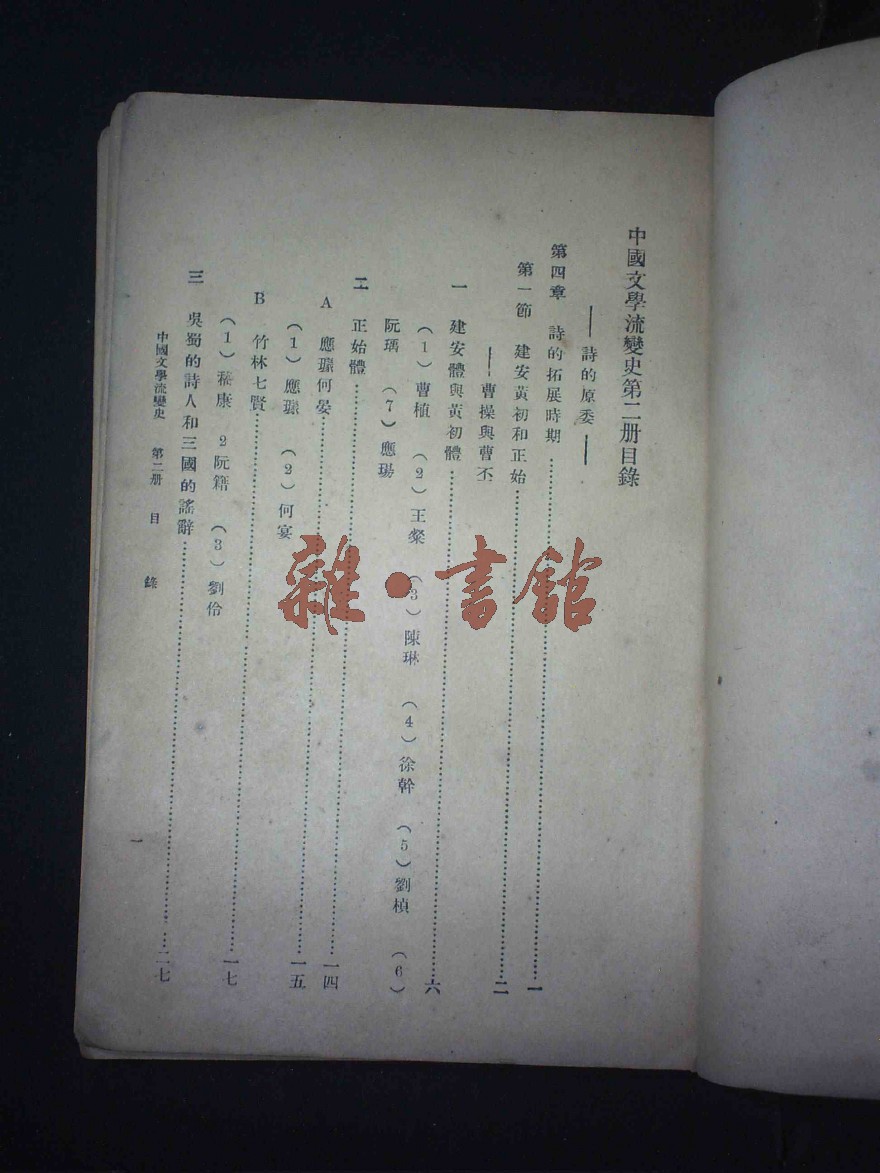 中國文學流變史第二册目錄
——詩的原委——
第四章 詩的拓展時期……一
第一節 建安黃初和正始……二
——曹操與曹丕
一 建安體與黃初體……六
（1）曹植 （2）王粲 （3）陳琳 （4）徐幹 （5）劉楨 （6）
阮瑀 （7）應瑒
二 正始體……一四
A 應璩何晏……一五
（1）應璩 （2）何宴
B 竹林七賢……一七
（1）嵇康 2阮籍 （3）劉伶
三 吳蜀的詩人和三國的謠辭……二七
中國文學流變史 第二册 目 錄 一
雜·書館